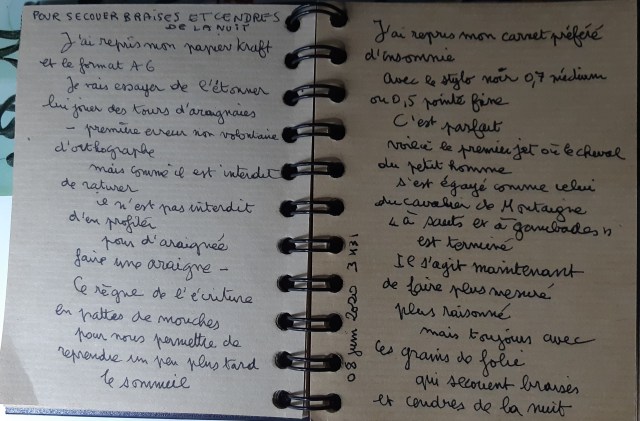 POUR SECOUER BRAISES ET CENDRES
DE LA NUIT
J'ai repris mon papier kraft
et le format A6
Je vais essayer de l'étonner
lui jouer des tours d'araignaies
– première erreur non volontaire
d'orthographe
mais comme il est interdit
de raturer
il n'est pas interdit
d'en profiter
pour d'araignée
faire une araigne –
Ce règne de l'écriture
en pattes de mouches
pour nous permettre de
reprendre un peu plus tard
le sommeil
08 juin 2020 3H31
J'ai repris mon carnet préféré
d'insomnie
Avec le stylo noir 0,7 médium
ou 0,5 pointe fine
C'est parfait
voilà le premier jet où le cheval
du petit homme
s'est égayé comme celui
du cavalier de Montaigne
« à sauts et à gambades »
est terminé
Il s'agit maintenant
de faire plus mesuré
plus raisonné
mais toujours avec
les grains de folie
qui secouent braises
et cendres de la nuit